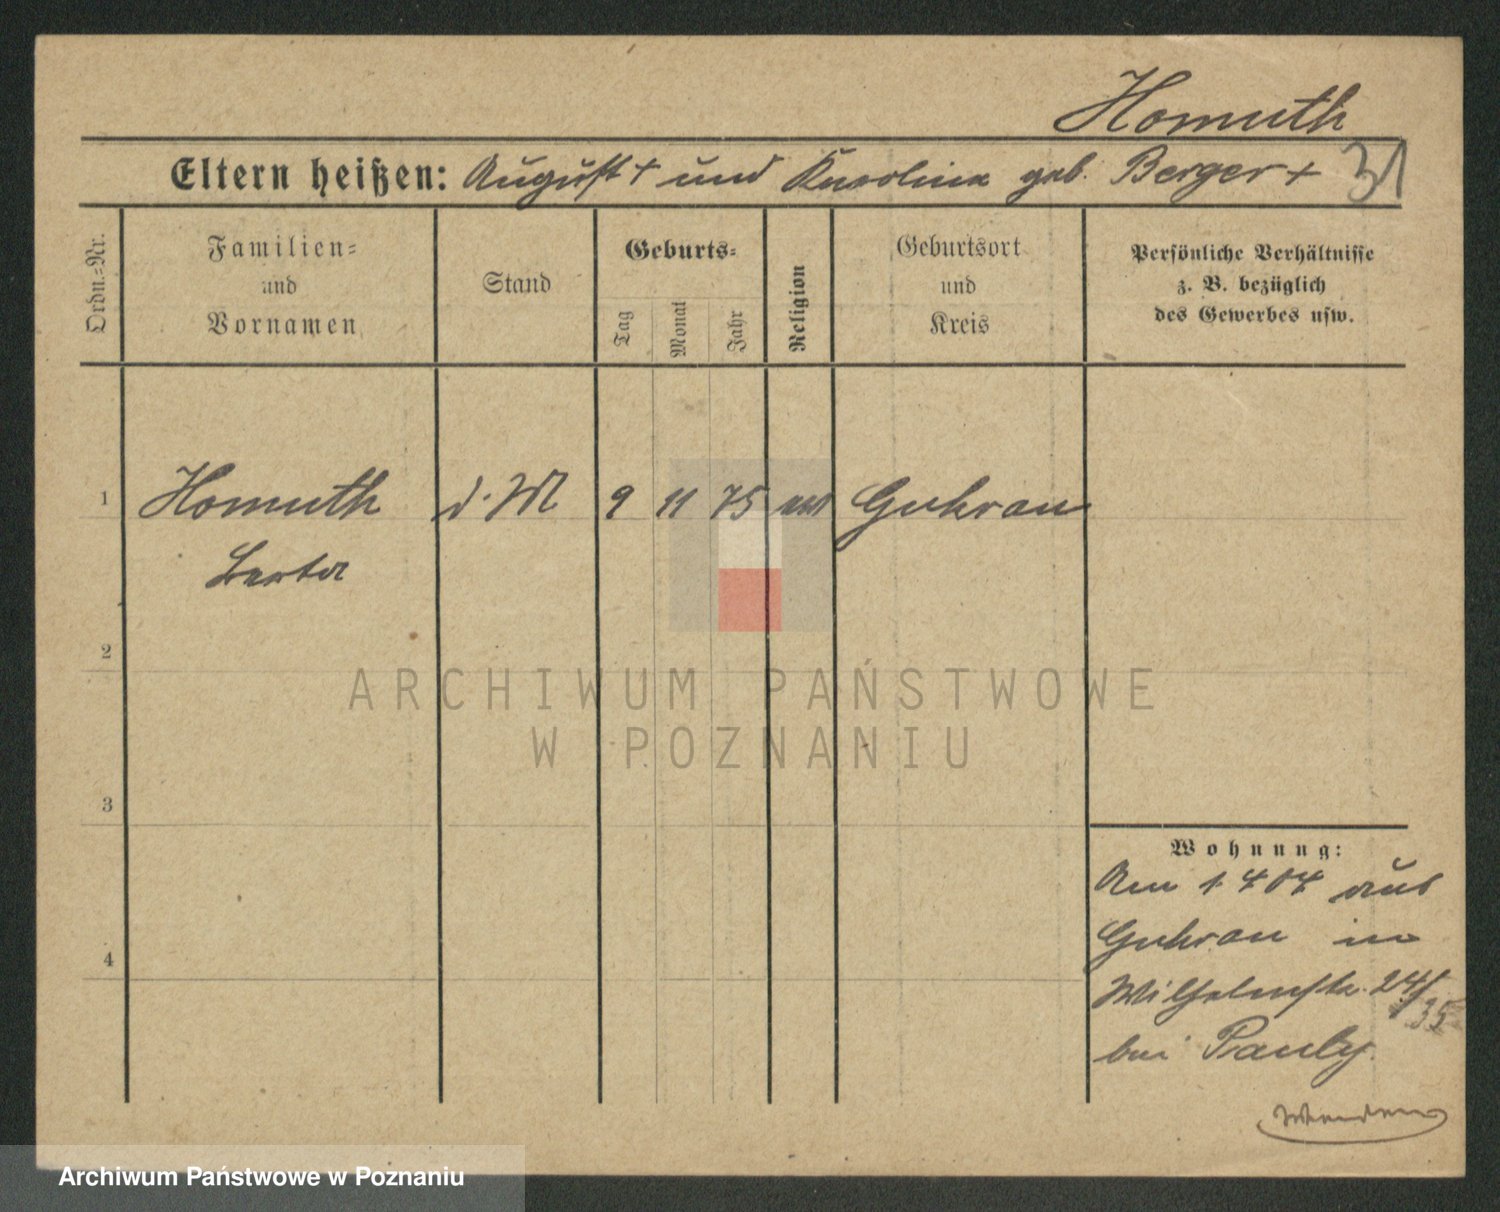 Homuth
Eltern heißen: August + und Karolina geb. Berger + 31
Ordn.=Nr.
Familien=
und
Vornamen
Stand
Geburts=
Tag
Monat
Jahr
Religion
Geburtsort
und
Kreis
Persönliche Verhältnisse
z. B. bezüglich
des Gewerbes usw.
1 Homuth d. M 9 11 75 Guhrau
Berta
2
3
4
Wohnung:
Am 1 4 04 aus
Guhrau in
Wilhelmstr. 24/
35
bei Pauly.
Wenden
ARCHIWUM PAŃSTWOWE
W POZNANIU
Archiwum Państwowe w Poznaniu